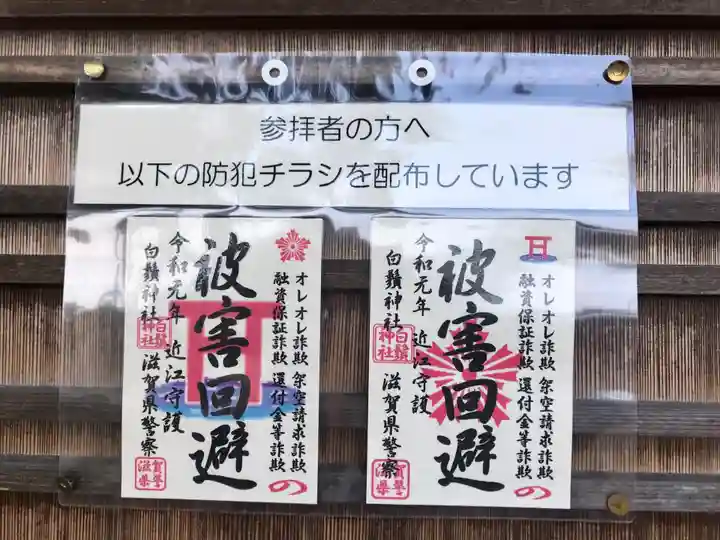 参拝者の方へ
以下の防犯チラシを配布しています
オレオレ詐欺 架空請求詐欺
融資保証詐欺 還付金等詐欺 の
被害回避
令和元年 近江守護
白鬚神社 滋賀県警察
白鬚神社
滋賀県警
オレオレ詐欺 架空請求詐欺
融資保証詐欺 還付金等詐欺 の
被害回避
令和元年 近江守護
白鬚神社 滋賀県警察
白鬚神社
滋賀県警